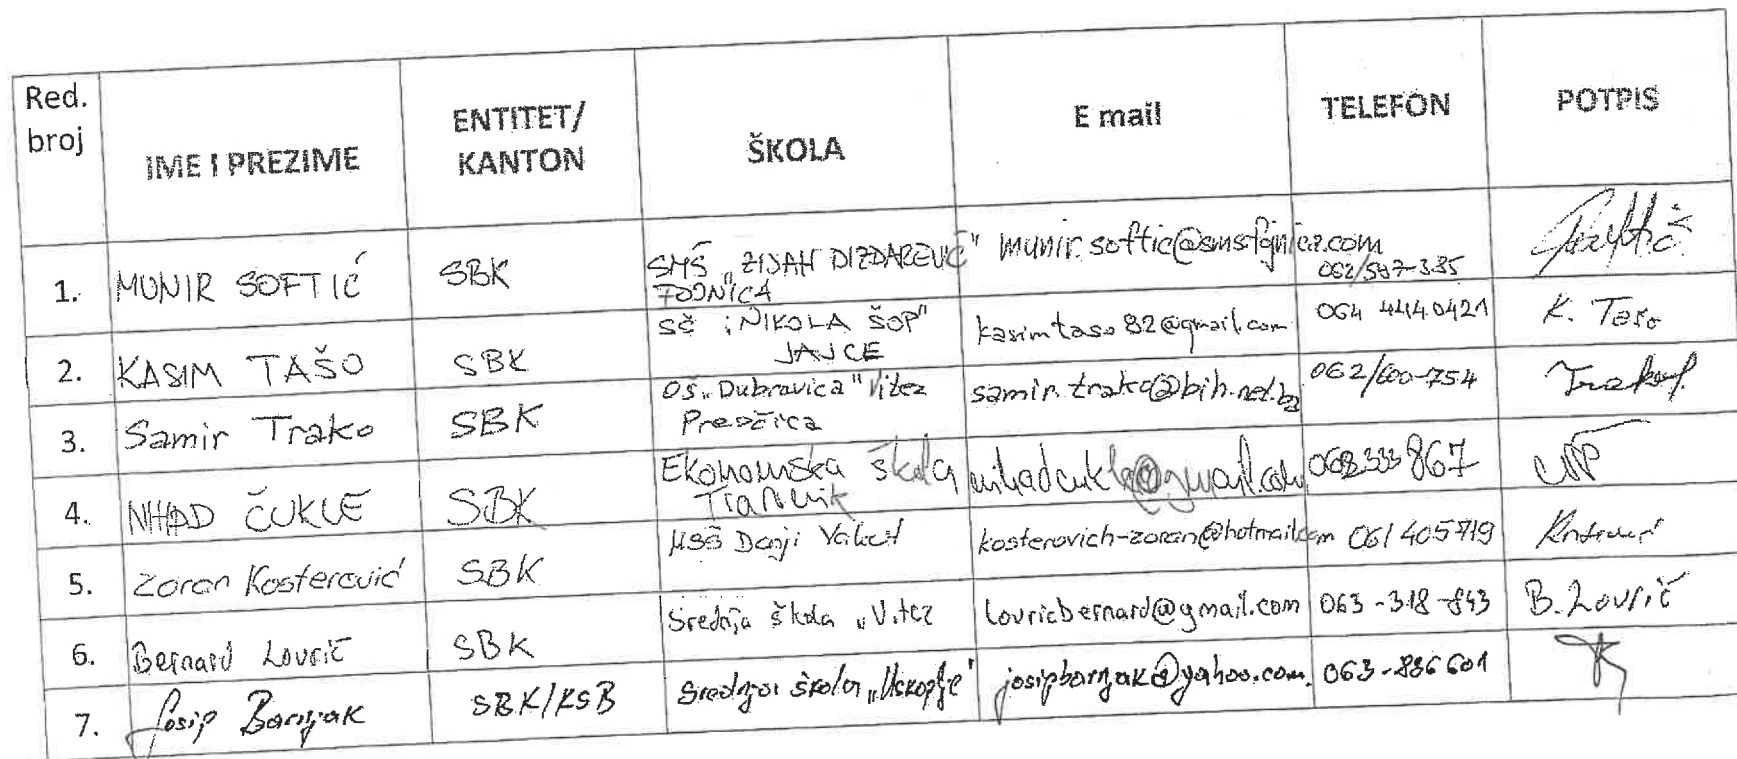 Red. broj IME I PREZIME ENTITET/ KANTON ŠKOLA E mail TELEFON POTPIS
1. MUNIR SOFTIĆ SBK SMŠ „ZIJAH DIZDAREVIĆ" FOJNICA munir.softic@smsfojnica.com 062/547-385
2. KASIM TAŠO SBK SŠ „NIKOLA ŠOP" JAJCE kasimtaso82@gmail.com 064 4440421 K. Tašo
3. Samir Trako SBK OŠ „Dubravica" Vitez samir.trako@bih.net.ba 062/600-754 Trako S.
4. NIHAD ČUKLE SBK Ekonomska škola Travnik nihadcukle@gmail.com 062 333 867
5. Zoran Kosterović SBK MSŠ Donji Vakuf kosterovich-zoran@hotmail.com 061 405719
6. Bernard Lovrić SBK Srednja škola „Vitez lovricbernard@gmail.com 063-318-843 B. Lovrić
7. Josip Barnjak SBK/KSB Srednja škola „Uskoplje" josipbarnjak@yahoo.com. 063-886601